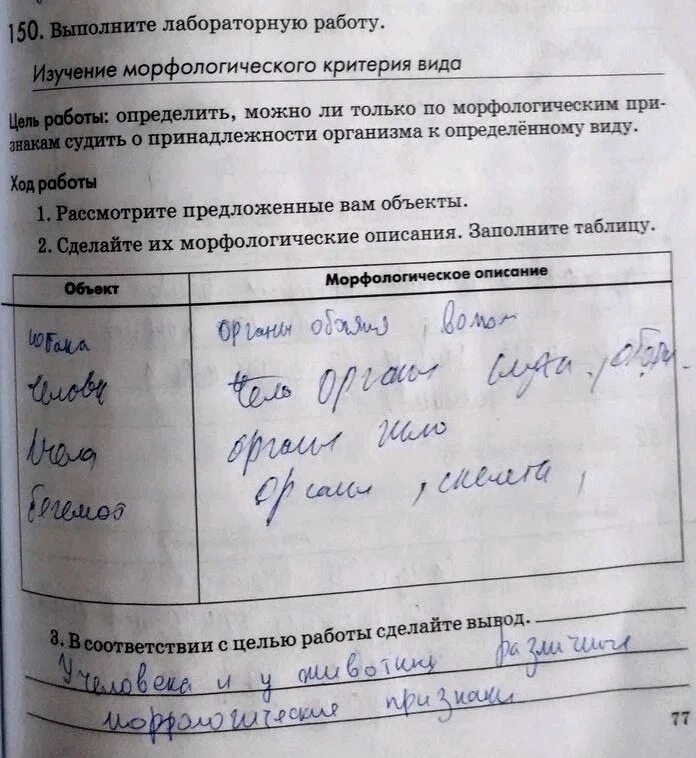 150. Выполните лабораторную работу.
Изучение морфологического критерия вида
Цель работы: определить, можно ли только по морфологическим при-
знакам судить о принадлежности организма к определённому виду.
Ход работы
1. Рассмотрите предложенные вам объекты.
2. Сделайте их морфологические описания. Заполните таблицу.
Объект
Морфологическое описание
органы
органы слуха,
органы
бегемот
органы, скелета,
3. В соответствии с целью работы сделайте вывод.
У человека и у животных различные
морфологические признаки
77